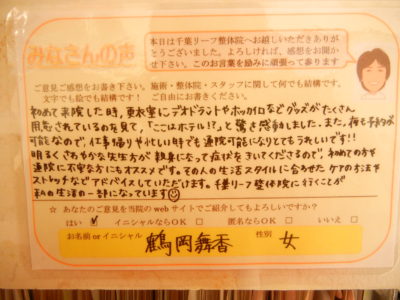 みなさんの声
本日は千葉リーフ整体院へお越しいただきありが
とうございました。よろしければ、感想をお聞か
せ下さい。このお言葉を励みに頑張って参ります
ご意見ご感想をお書き下さい。施術・整体院・スタッフに関して何でも結構です。
文字でも絵でも結構です!　ご自由にお書きください。
初めて来院した時、更衣室にデオドラントやホッカイロなどグッズがたくさん
用意されているのを見て、「ここはホテル!?」と驚き感動しました。また、夜も予約が
可能なので、仕事帰りや忙しい時でも通院可能になりとてもうれしいです!!
明るくさわやかな先生方が親身になって症状をきいてくださるので、初めての方や
通院に不安な方にもオススメです。その人の生活スタイルに合わせたケアの方法や
ストレッチなどアドバイスしていただけます。千葉リーフ整体院に行くことが
私の生活の一部になっています☺
☆ あなたのご意見を当院のwebサイトでご紹介してもよろしいですか?
はい ✓　イニシャルならOK □　匿名ならOK □　いいえ □
お名前orイニシャル 鶴岡舞香 性別 女